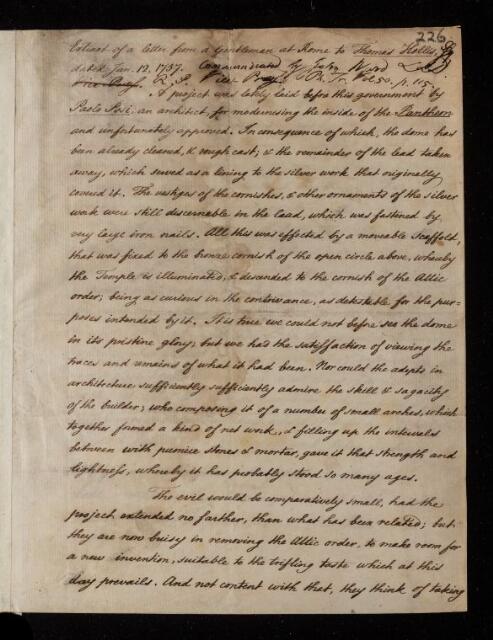 226
Extract of a letter from a Gentleman at Rome to Thomas Hollis, Esq
dated Jan. 12, 1757. Communicated by John Ward L.L.D.
R. S. Vice Præs. Ph. Tr. Vol. 50. p. 115.
A project was lately laid before this government by
Paolo Posi, an architect, for modernising the inside of the Pantheon
and unfortunately approved. In consequence of which, the dome has
been already cleaned, & rough cast; & the remainder of the lead taken
away, which served as a lining to the silver work that originally
covered it. The vestiges of the cornishes, & other ornaments of the silver
work were still discernable in the lead, which was fastened by
very large iron nails. All this was effected by a moveable scaffold,
that was fixed to the bronze cornish of the open circle above, whereby
the Temple is illuminated, & descended to the cornish of the Attic
order; being as curious in the contrivance, as detestable for the pur-
poses intended by it. It is true we could not before see the dome
in its pristine glory; but we had the satisfaction of viewing the
traces and remains of what it had been. Nor could the adepts in
architecture sufficiently sufficiently admire the skill & sagacity
of the builder; who composing it of a number of small arches, which
together formed a kind of net work, & filling up the intervals
between with pumice stones & mortar, gave it that strength and
lightness, whereby it has probably stood so many ages.
The evil would be comparatively small, had the
project extended no farther, than what has been related; but
they are now busy in removing the Attic order, to make room for
a new invention, suitable to the trifling taste which at this
day prevails. And not content with that, they think of taking